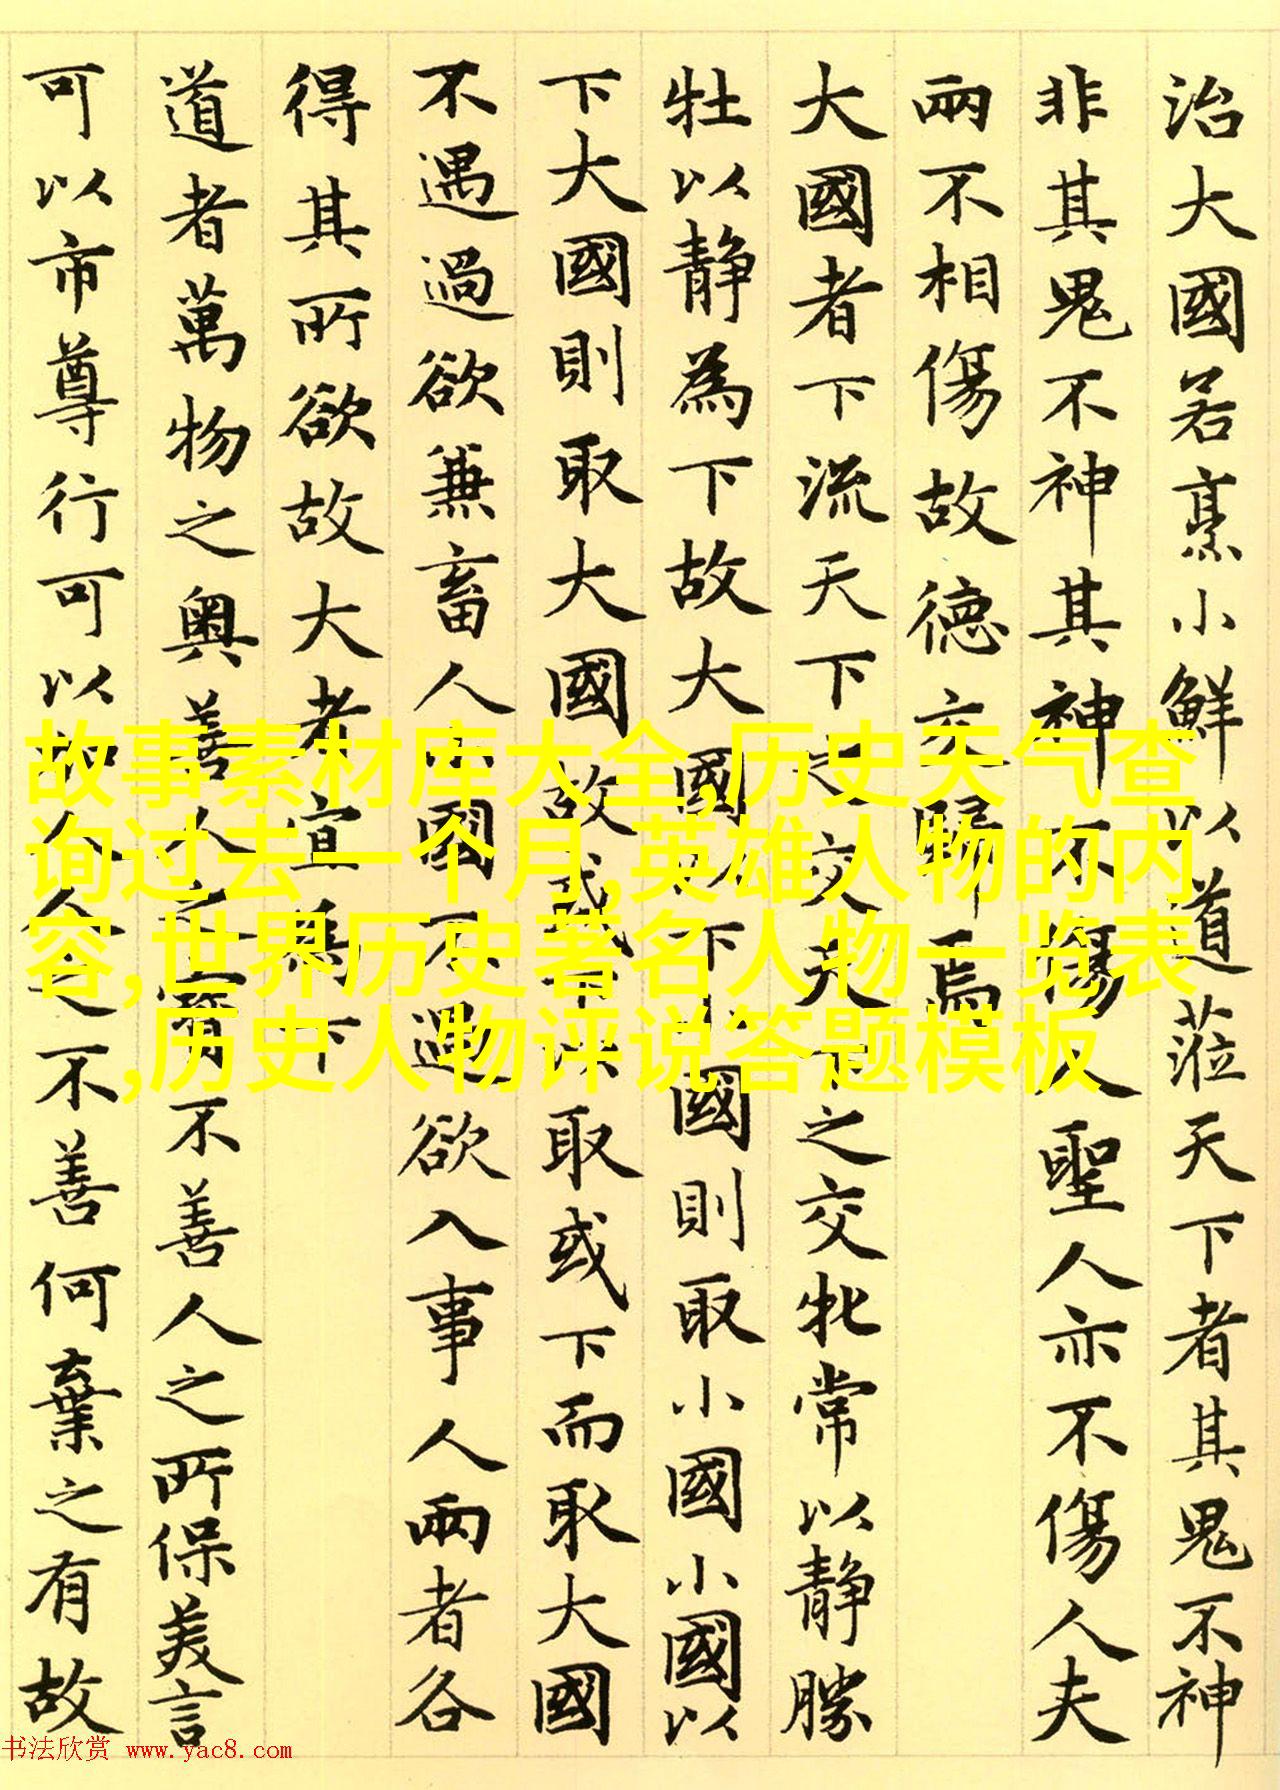 治大國若烹小鮮以道蒞天下者其鬼不神
非其鬼不神其神不傷人聖人亦不傷人夫
兩不相傷故德交歸焉
大國者下流天下之交天下之交牝常以静勝
牡以静為下故大國以下小國則取小國小國以
下大國則取大國故或下以取或下而取大國
不遇過欲兼畜人小國不過欲入事人兩者各
得其所欲故大者宜為下
道者萬物之奥善人之寶不善人之所保美言
可以市尊行可以加人人之不善何棄之有故
故事素材库大全,历史天气查
询过去一个月,英雄人物的内
容,世界历史著名人物一览表
,历史人物评说答题模板
书法欣赏 www.yac8.com